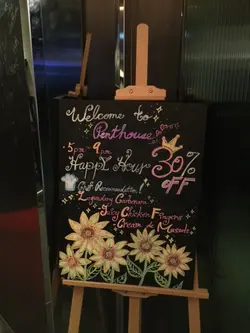 Welcome to
Penthouse
5pm ~ 9pm
Happy Hour 30%
OFF
Chef Recommendation
Legendary Carbonara
Juicy Chicken Fingers
Creme de Muscade